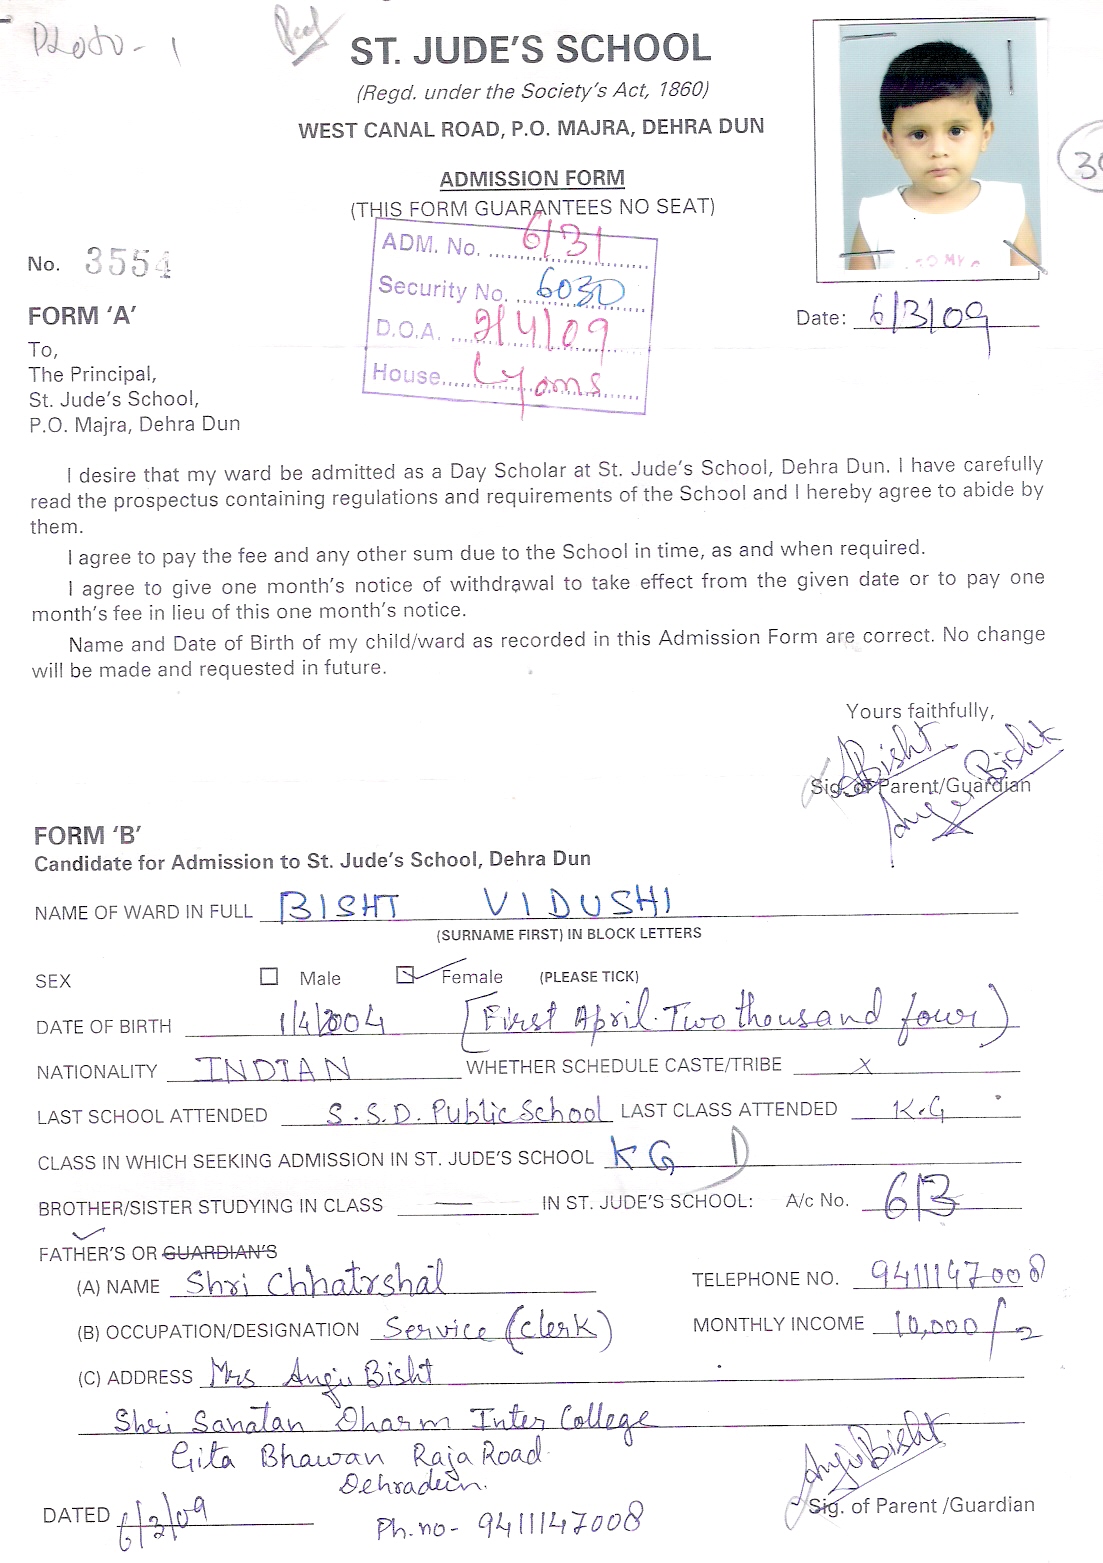 Photo - 1
ST. JUDE'S SCHOOL
(Regd. under the Society's Act, 1860)
WEST CANAL ROAD, P.O. MAJRA, DEHRA DUN
ADMISSION FORM
(THIS FORM GUARANTEES NO SEAT)
No. 3554
ADM. No. 6131
Security No. 6030
D.O.A. 2/4/09
House Lyons
Date: 6/3/09
FORM 'A'
To,
The Principal,
St. Jude's School,
P.O. Majra, Dehra Dun
I desire that my ward be admitted as a Day Scholar at St. Jude's School, Dehra Dun. I have carefully
read the prospectus containing regulations and requirements of the School and I hereby agree to abide by
them.
I agree to pay the fee and any other sum due to the School in time, as and when required.
I agree to give one month's notice of withdrawal to take effect from the given date or to pay one
month's fee in lieu of this one month's notice.
Name and Date of Birth of my child/ward as recorded in this Admission Form are correct. No change
will be made and requested in future.
Yours faithfully,
Bisht Anju Bisht
Sig. of Parent/Guardian
FORM 'B'
Candidate for Admission to St. Jude's School, Dehra Dun
NAME OF WARD IN FULL BISHT VIDUSHI
(SURNAME FIRST) IN BLOCK LETTERS
SEX Male Female (PLEASE TICK)
DATE OF BIRTH 1/4/2004 [First April Two thousand four)
NATIONALITY INDIAN WHETHER SCHEDULE CASTE/TRIBE X
LAST SCHOOL ATTENDED S.S.D. Public School LAST CLASS ATTENDED K.G
CLASS IN WHICH SEEKING ADMISSION IN ST. JUDE'S SCHOOL KG D
BROTHER/SISTER STUDYING IN CLASS — IN ST. JUDE'S SCHOOL: A/c No.
FATHER'S OR GUARDIAN'S
(A) NAME Shri Chhatrshal TELEPHONE NO. 9411147008
(B) OCCUPATION/DESIGNATION Service (Clerk) MONTHLY INCOME 10,000/-
(C) ADDRESS Mrs Anju Bisht
Shri Sanatan Dharm Inter College
Gita Bhawan Raja Road
Dehradun.
Anju Bisht
Sig. of Parent /Guardian
DATED 6/3/09
Ph.no- 9411147008